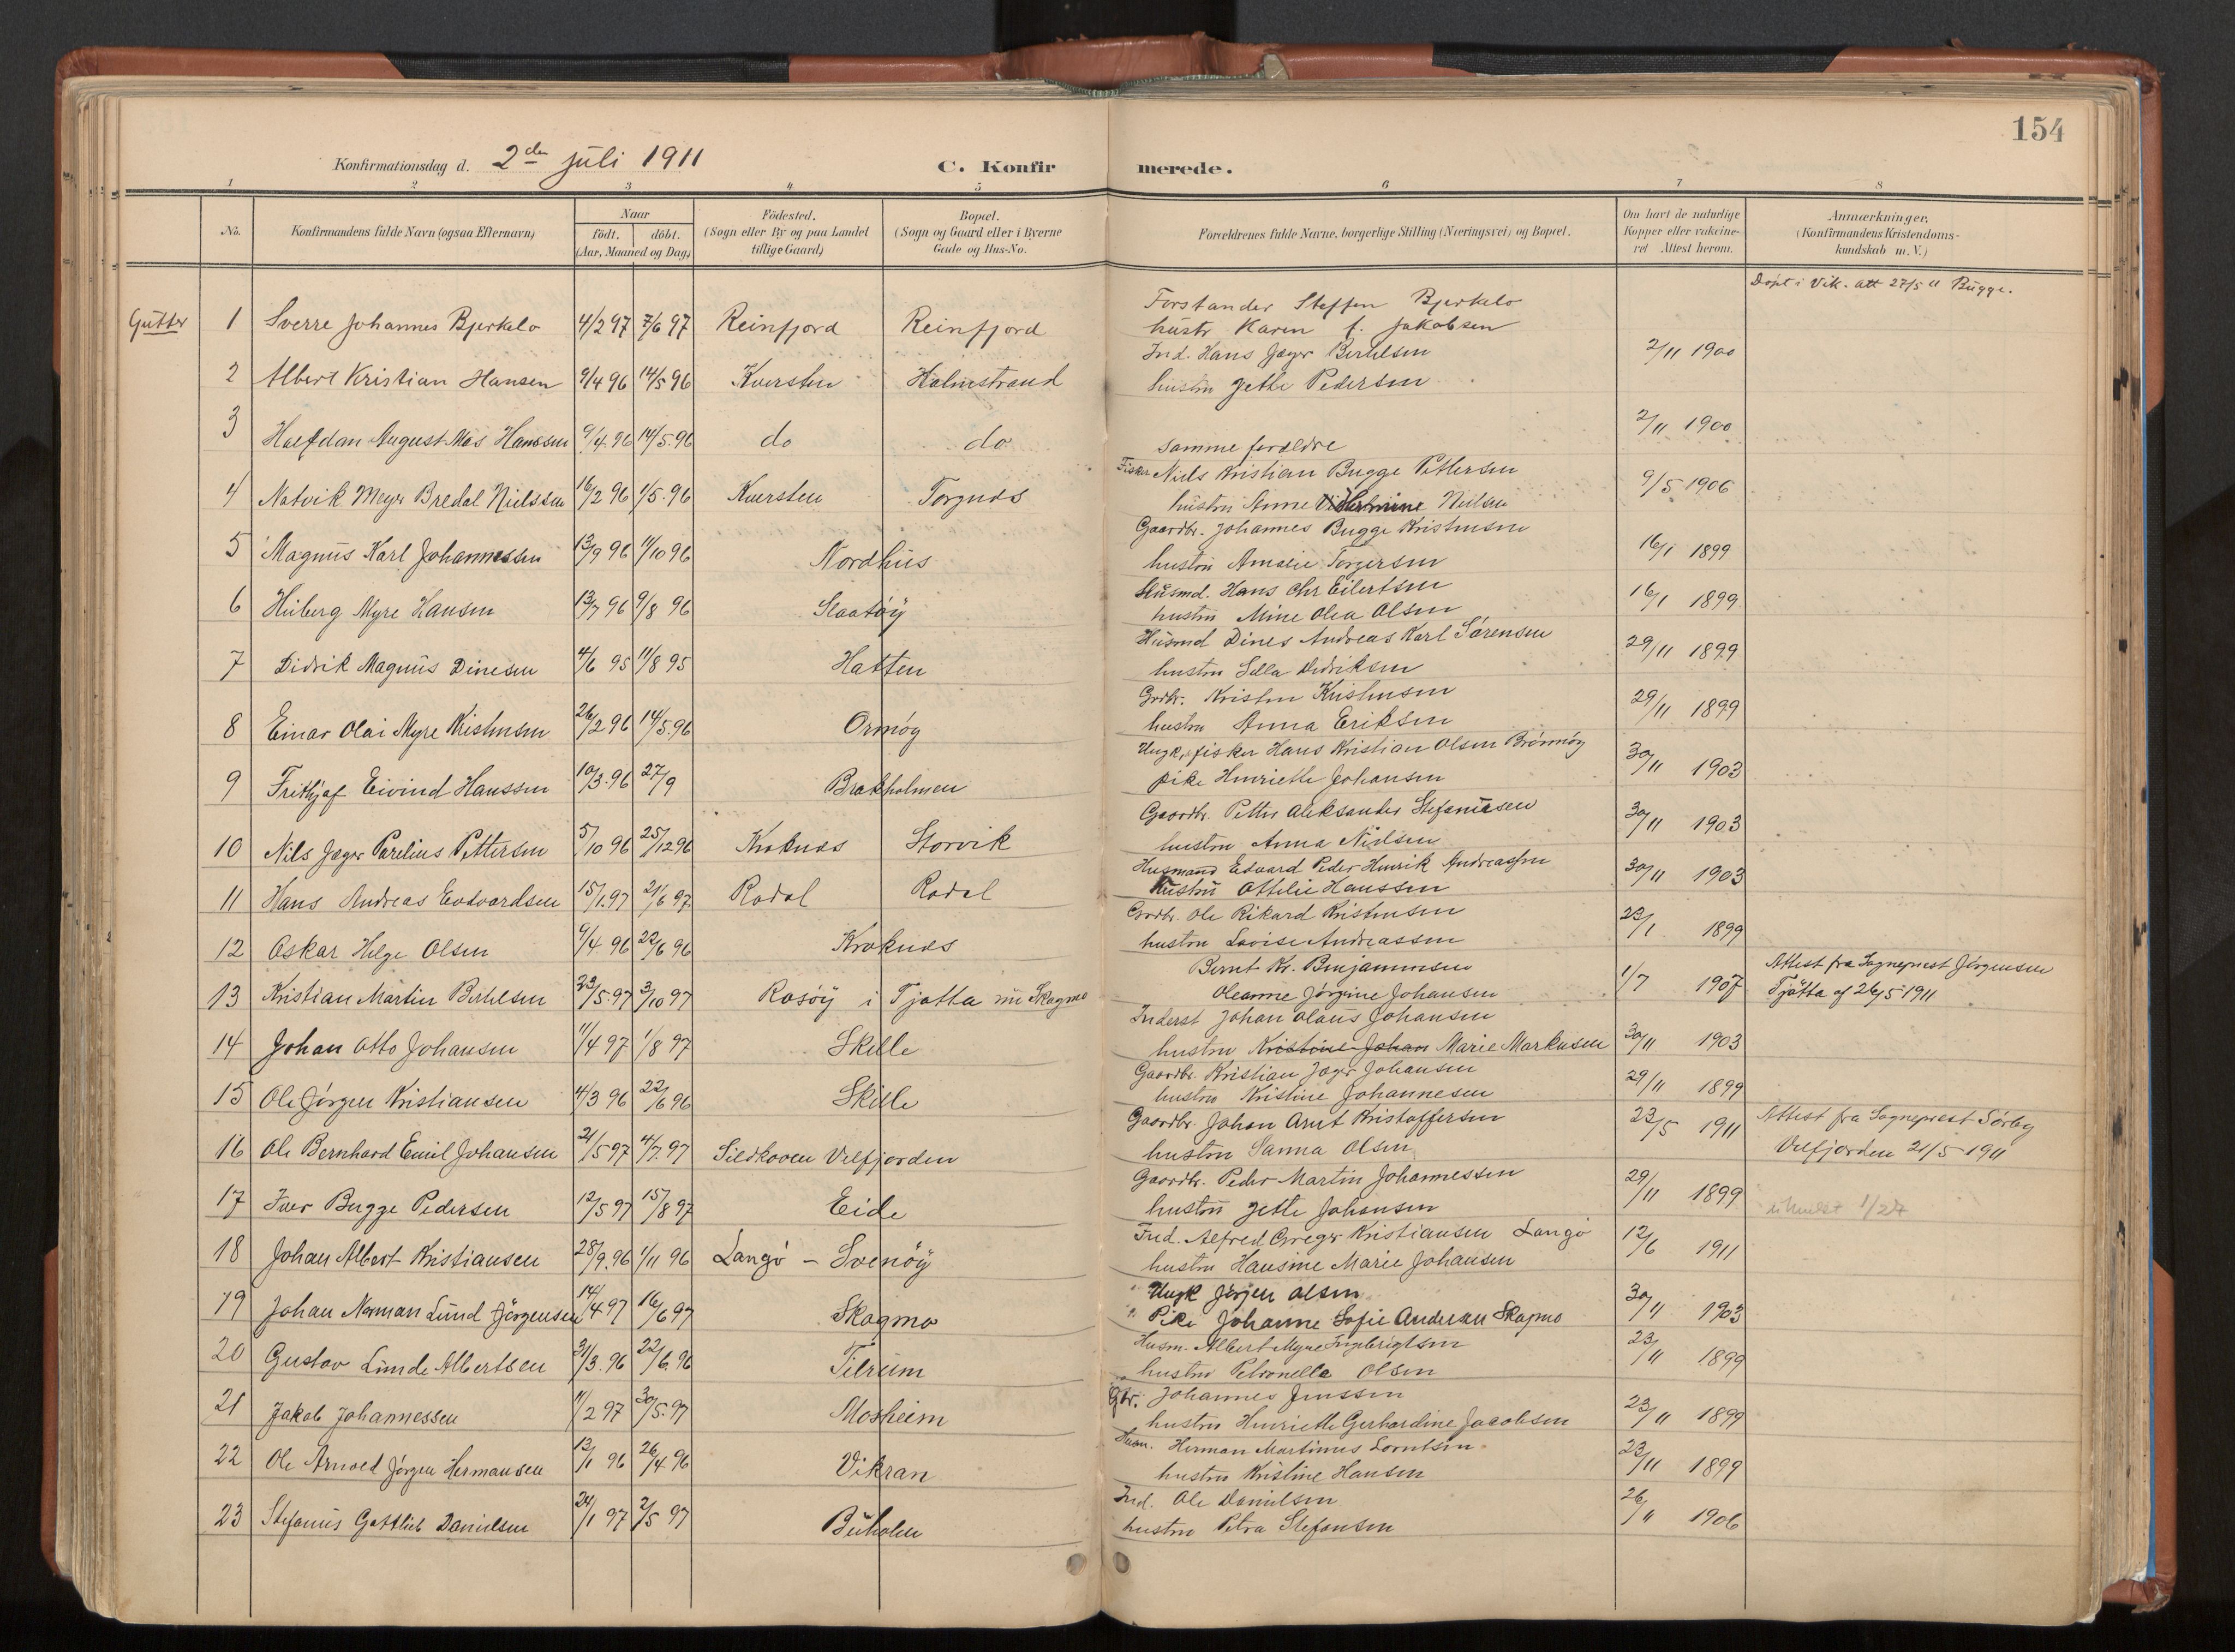 154
Konfirmationsdag d. 2den juli 1911
C. Konfirmerede.
1 2 3 4 5 6 7 8
No.
Konfirmandens fulde Navn (ogsaa Efternavn)
Naar
födt. döbt.
(Aar, Maaned og Dag)
Födested.
(Sogn eller By og paa Landet
tillige Gaard)
Bopæl.
(Sogn og Gaard eller i Byerne
Gade og Hus-No.
Forældrenes fulde Navne, borgerlige Stilling (Næringsvei) og Bopæl.
Om havt de naturlige
Kopper eller vakcine-
ret Attest herom.
Anmærkninger.
(Konfirmandens Kristendoms-
kundskab m. V.)
Gutter
1 Sverre Johannes Bjerkelo 4/2 97 7/6 97 Reinfjord Reinfjord
Forstander Steffen Bjerkelo
hustr Karen f. Jakobsen
Döpt i Vik. att 27/5 11 Bugge.
2 Albert Kristian Hansen 9/4 96 14/5 96 Holmstrand
Ind. Hans Jæger Bertelsen
hustru Jette Pedersen
2/11 1900
3 Halfdan August Hanssen 9/4 96 14/5 96 do do
samme forældre
2/11 1900
4 Natvik Meyer Bredal Nielssen 16/2 96 1/5 96 Torgnes
Fisker Niels Kristian Bugge Pettersen
hustru Anne Hermine Nielsen
9/5 1906
5 Magnus Karl Johannessen 13/9 96 11/10 96 Nordhus
Gaardbr. Johannes Bugge Kristensen
hustru Amalie Torgersen
16/1 1899
6 Huberg Myre Hansen 13/7 96 9/8 96 Slaatöy
Husmd. Hans Chr Eilertsen
hustru Mine Olea Olsen
16/1 1899
7 Didrik Magnus Dinesen 4/6 95 11/8 95 Hatten
Husmd Dines Andreas Karl Sörensen
hustru Sella Didriksen
29/11 1899
8 Einar Olai Myre Kristensen 26/2 96 14/5 96 Ormöy
Grdbr. Kristen Kristensen
hustru Anna Eriksen
29/11 1899
9 Frithjof Eivind Hanssen 10/3 96 27/9 Brakholmen
Ungk, fisker Hans Kristian Olsen Brönnöy
pike Henriette Johansen
30/11 1903
10 Nils Jæger Parelius Pettersen 5/10 96 25/12 96 Kroknes Storvik
Gaardbr. Petter Aleksander Stefanusen
hustru Anna Nielsen
30/11 1903
11 Hans Andreas Edvardsen 15/1 97 21/6 97 Rodal Rodal
Husmand Edvard Peder Henrik Andreassen
hustru Ottilie Hanssen
30/11 1903
12 Oskar Helge Olsen 9/4 96 22/6 96 Kroknes
Grdbr. Ole Rikard Kristensen
hustru Lovise Andreassen
23/1 1899
13 Kristian Martin Bertelsen 23/5 97 3/10 97 Rosöy i Tjøtta nu Skagmo
Bernt Kr. Benjaminsen
Oleanne Jörgine Johansen
1/7 1907
Attest fra Sogneprest Jörgensen
Tjötta af 26/5 1911
14 Johan Otto Johansen 11/4 97 1/8 97 Skille
Inderst Johan Olaus Johansen
hustru Kristine Johan Marie Markusen
30/11 1903
15 Ole Jörgen Kristiansen 4/3 96 22/6 96 Skille
Gaardbr. Kristian Jæger Johansen
hustru Kristine Johannesen
29/11 1899
16 Ole Bernhard Emil Johansen 21/5 97 4/7 97 Velfjorden
Gaardbr. Johan Arnt Kristoffersen
hustru Sanna Olsen
23/5 1911
Attest fra Sogneprest Sörby
Velfjorden 21/5 1911
17 Iver Bugge Pedersen 12/5 97 15/8 97 Eide
Gaardbr. Peder Martin Johannessen
hustru Jette Johansen
29/11 1899
1/27
18 Johan Albert Kristiansen 28/9 96 1/11 96 Langö - Svenöy
Ind. Alfred Greger Kristiansen Langö
hustru Hansine Marie Johansen
12/6 1911
19 Johan Norman Lund Jörgensen 14/4 97 16/6 97 Skagmo
Ungk Jörgen Olsen
Pike Johanne Sofie Andersen Skagmo
30/11 1903
20 Gustav Lunde Albertsen 31/3 96 22/6 96 Tilrem
Husm. Albert Myre Ingebrigtsen
hustru Petronella Olsen
23/11 1899
21 Jakob Johannessen 11/2 97 30/5 97 Mosheim
Gbr. Johannes Jenssen
hustru Henriette Gerhardine Jacobsen
23/11 1899
22 Ole Arnold Jörgen Hermansen 13/1 96 26/4 96 Vikran
Husm. Herman Martinus Lorntsen
hustru Kristine Hansen
23/11 1899
23 Stefanus Gottlieb Danielsen 24/1 97 2/5 97 Buholm
Ind. Ole Danielsen
hustru Petra Stefansen
26/11 1906